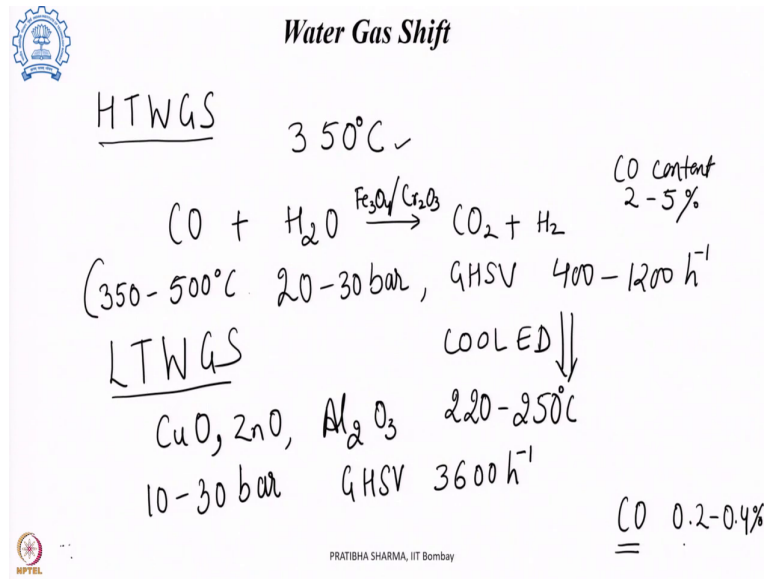 Water Gas Shift
HTWGS
350°C ✓
CO content
2-5%
CO + H2O Fe3O4/Cr2O3 → CO2 + H2
(350-500°C 20-30 bar, GHSV 400-1200 h⁻¹
COOLED ⇓
LTWGS
CuO, ZnO, Al2O3 220-250°C
10-30 bar GHSV 3600 h⁻¹
CO 0.2-0.4%
PRATIBHA SHARMA, IIT Bombay
NPTEL